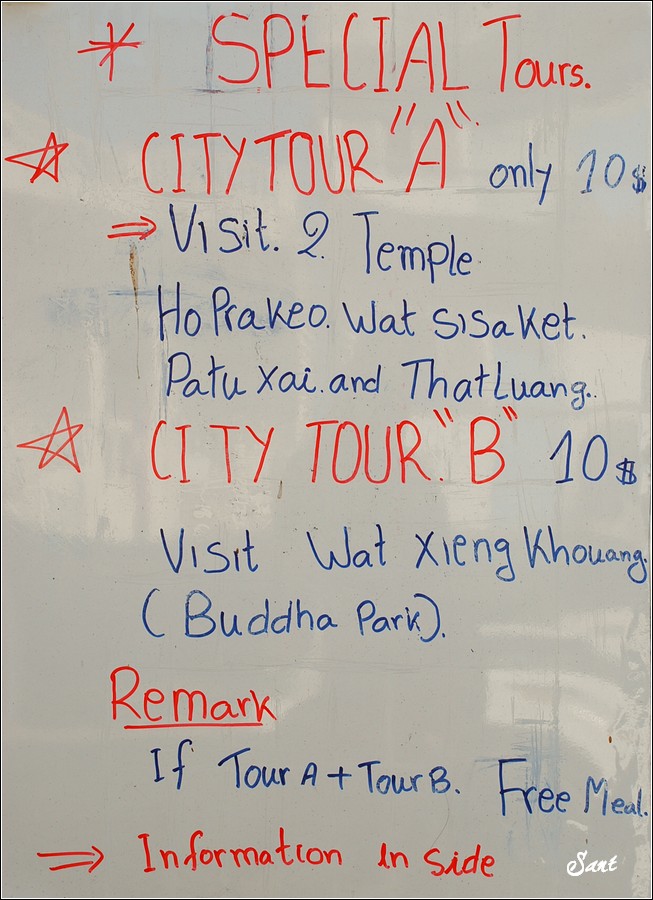 * SPECIAL Tours.
☆ CITY TOUR "A" only 10$
⇒ Visit. 2 Temple
Ho Prakeo. Wat Sisaket.
Patu Xai. and That Luang.
☆ CITY TOUR. "B" 10$
Visit Wat Xieng Khouang.
(Buddha Park).
Remark
If Tour A + Tour B. Free Meal.
⇒ Information in side
Sant